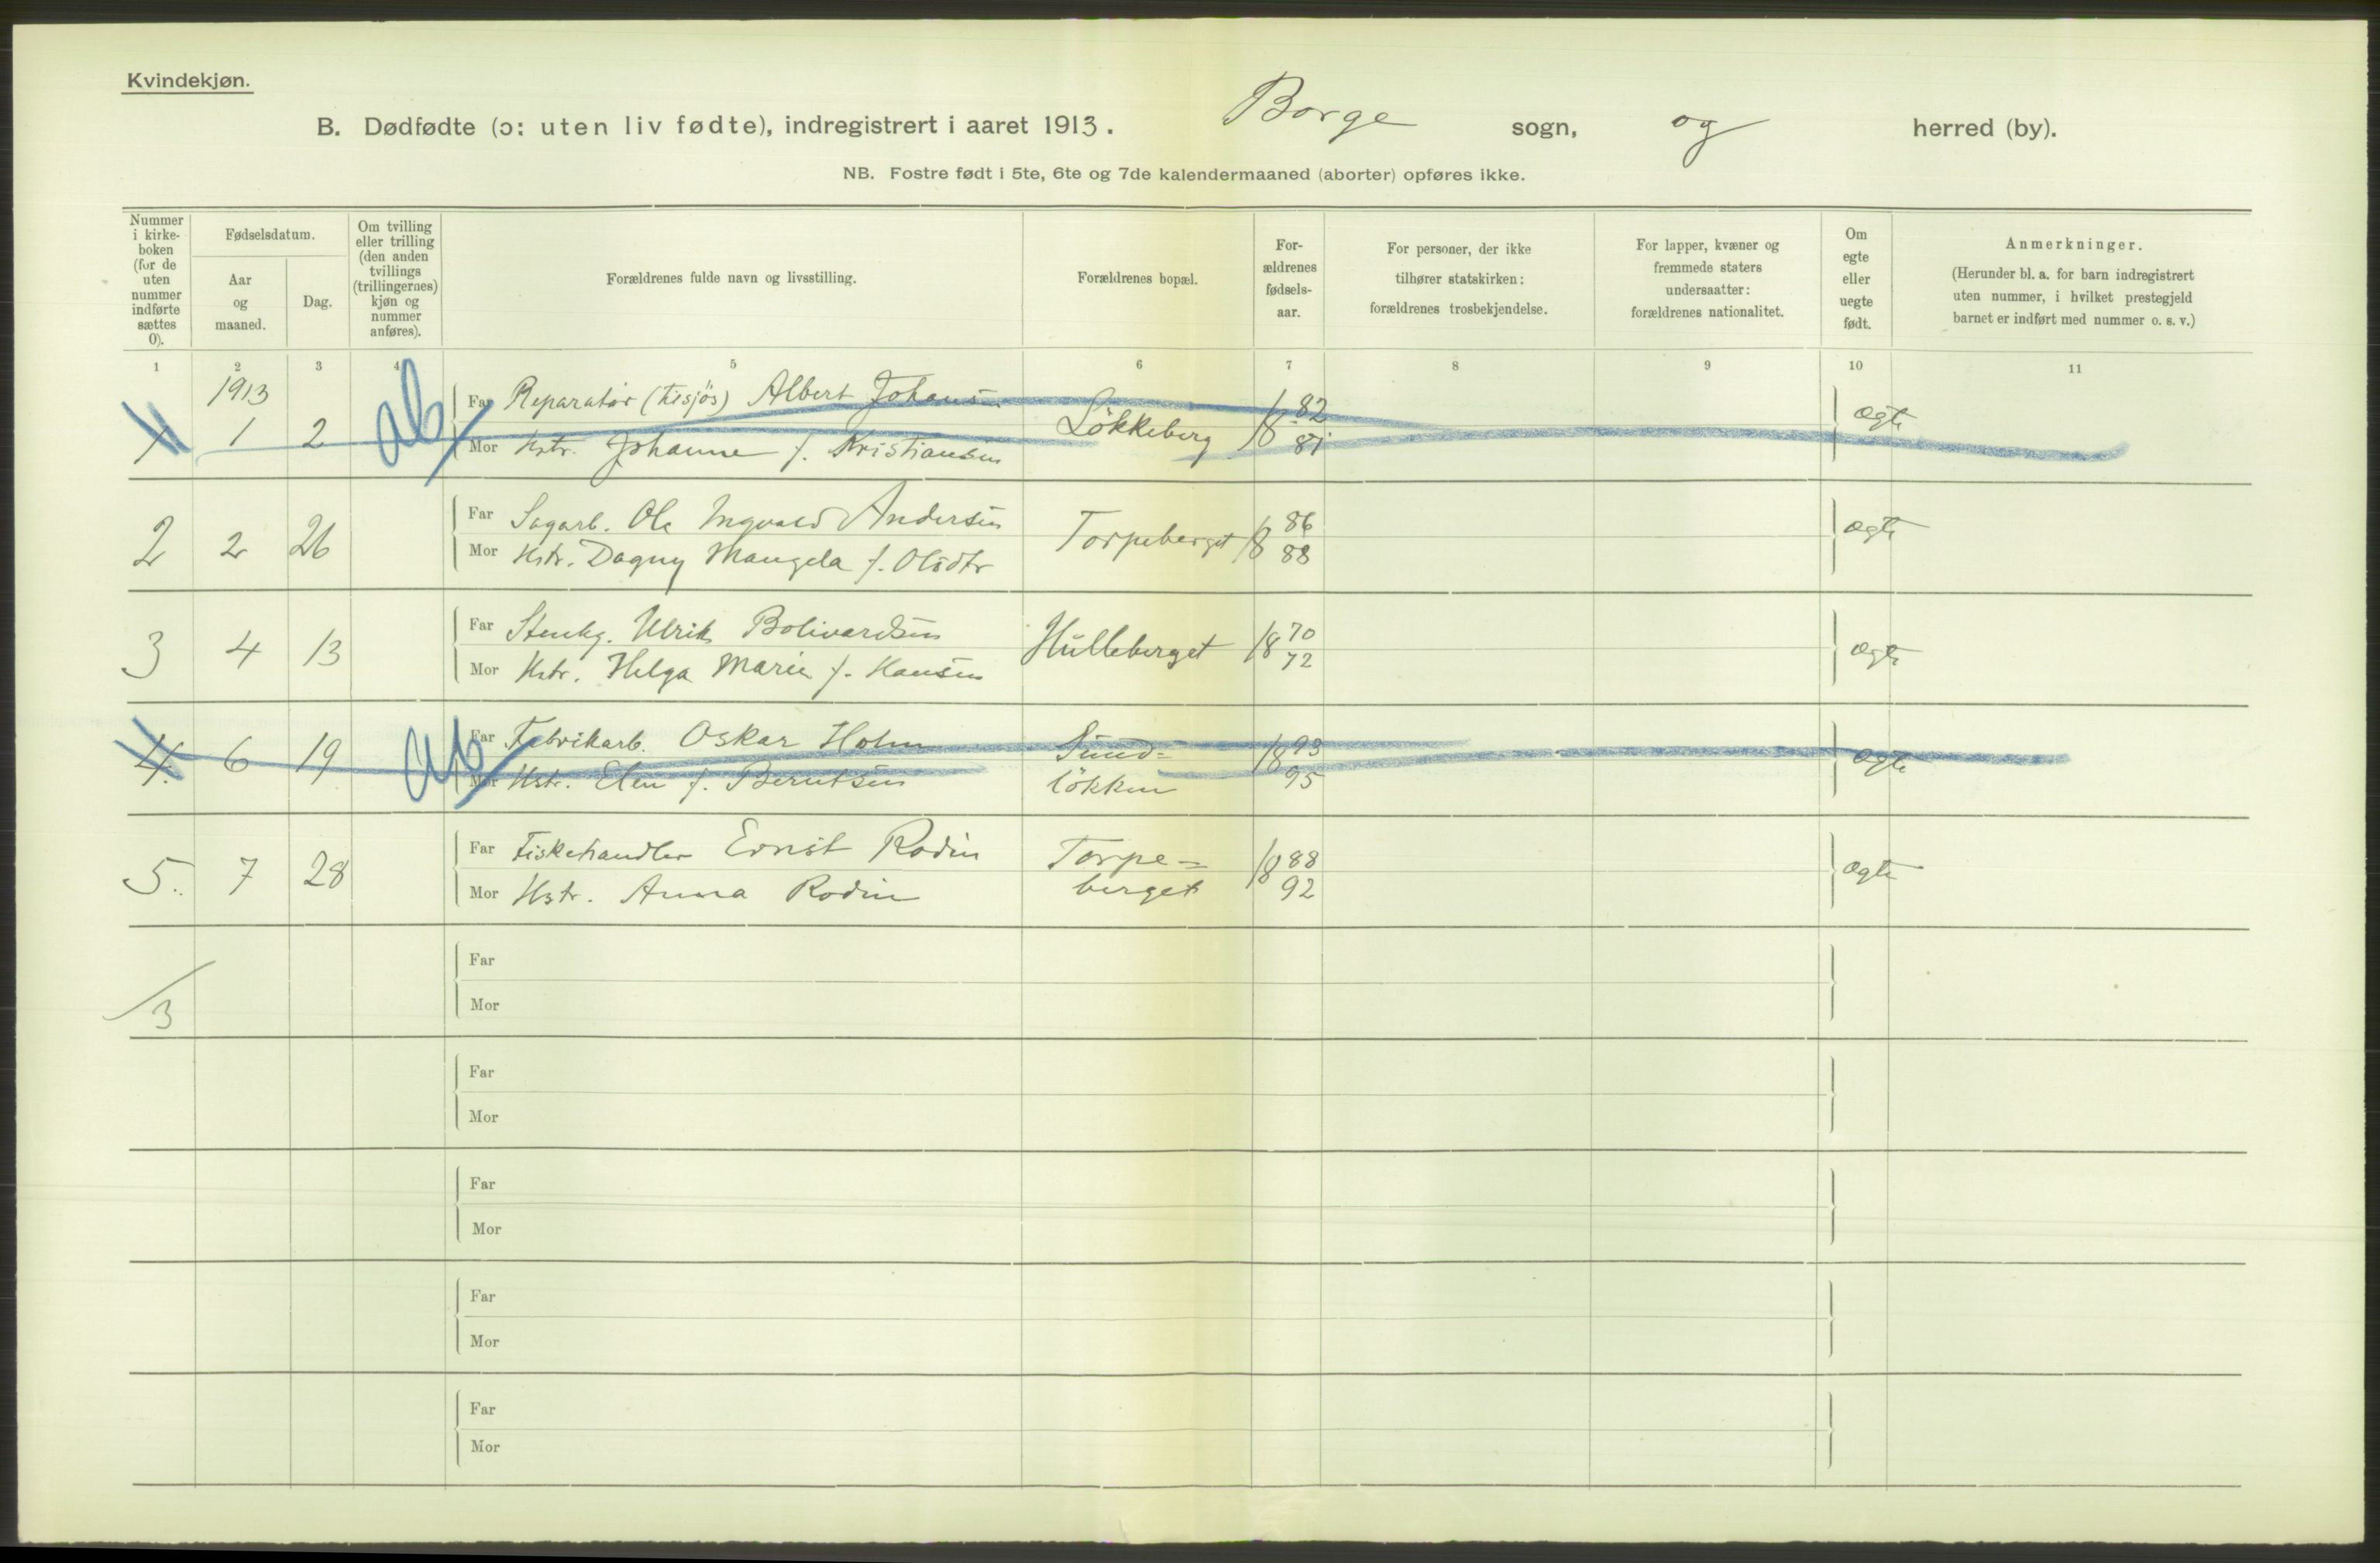 Kvindekjøn.
B. Dødfødte (ɔ: uten liv fødte), indregistrert i aaret 1913. Borge sogn, og herred (by).
NB. Fostre født i 5te, 6te og 7de kalendermaaned (aborter) opføres ikke.
Nummer
i kirke-
boken
(for de
uten
nummer
indførte
sættes
0).
Fødselsdatum.
Aar
og
maaned.
Dag.
Om tvilling
eller trilling
(den anden
tvillings
(trillingernes)
kjøn og
nummer
anføres).
Forældrenes fulde navn og livsstilling.
Forældrenes bopæl.
For-
ældrenes
fødsels-
aar.
For personer, der ikke
tilhører statskirken:
forældrenes trosbekjendelse.
For lapper, kvæner og
fremmede staters
undersaatter:
forældrenes nationalitet.
Om
egte
eller
uegte
født.
Anmerkninger.
(Herunder bl. a. for barn indregistrert
uten nummer, i hvilket prestegjeld
barnet er indført med nummer o. s. v.)
1 2 3 4 5 6 7 8 9 10 11
1913
1 1 2 ab Far Reparatør Albert Johansen Lökkeberg 18 82 ægte
Mor Hstr. Johanne f. Kristiansen 81
2 2 26 Far Sagarb. Ole Ingvald Andersen Torpeberget 18 86 ægte
Mor Hstr. Dagny Mangela f. Olsdtr 88
3 4 13 Far Stenhg. Ulrik Bolivardsen Hulleberget 18 70 ægte
Mor Hstr. Helga Marie f. Hansen 72
4. 6 19 ab Far Fabrikarb. Oskar Holm Sund= 18 93 ægte
Mor Hstr. Elen f. Berntsen lökken 95
5. 7 28 Far Fiskehandler Ernst Rodin Torpe= 18 88 ægte
Mor Hstr. Anna Rodin berget 92
Far
3 Mor
Far
Mor
Far
Mor
Far
Mor
Far
Mor